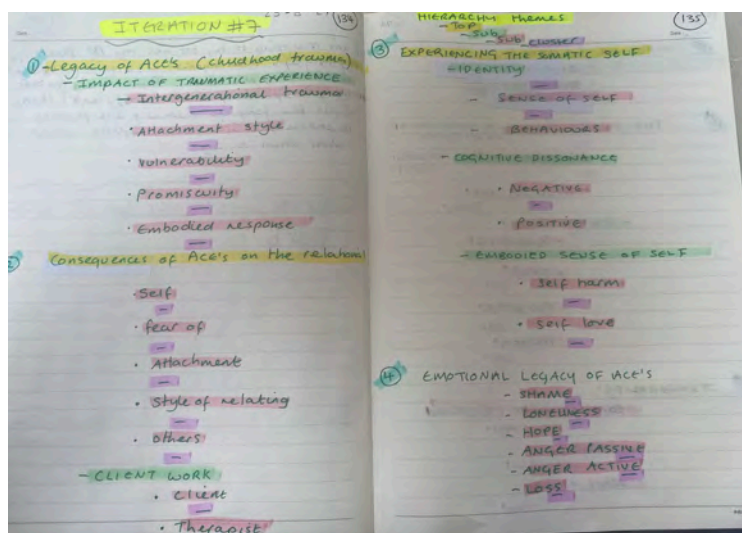 ITERATION #7
134
① - Legacy of Ace's (childhood trauma)
- IMPACT OF TRAUMATIC EXPERIENCE
- Intergenerational trauma
• Attachment style
• Vulnerability
• Promiscuity
• Embodied response
2 Consequences of Ace's on the relational
• Self
• fear of
• Attachment
• Style of relating
• others
- CLIENT WORK
• Client
• Therapist
HIERARCHY themes
135
- TOP
- Sub
- Sub cluster
③ EXPERIENCING THE SOMATIC SELF
- IDENTITY
- SENSE OF SELF
- BEHAVIOURS
- COGNITIVE DISSONANCE
• NEGATIVE
• POSITIVE
- EMBODIED SENSE OF SELF
• Self harm
• Self love
④ EMOTIONAL LEGACY OF ACE'S
- SHAME
- LONELINESS
- HOPE
- ANGER PASSIVE
- ANGER ACTIVE
- LOSS